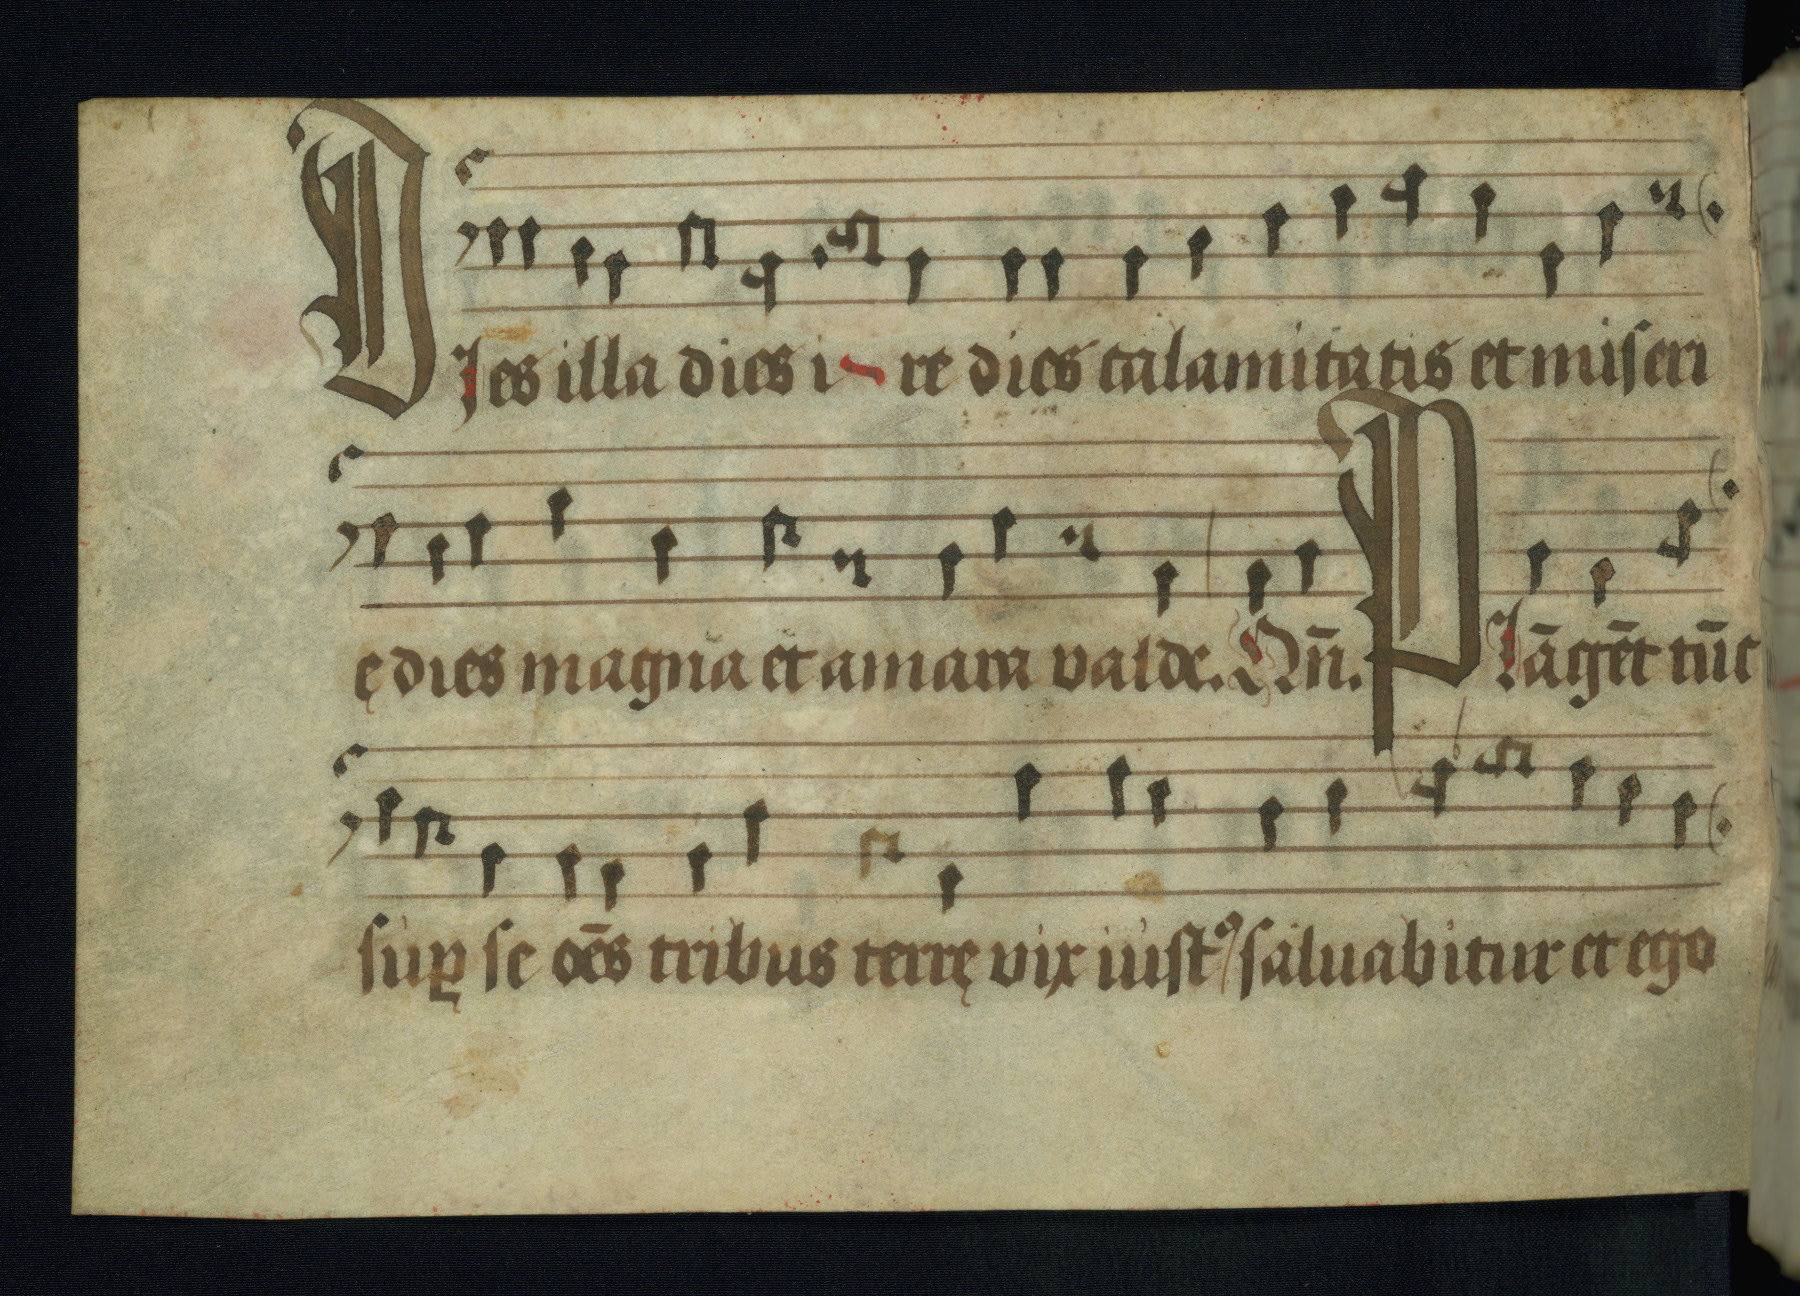 DIes illa dies i re dies calamitatis et miseri
ę dies magna et amara valde. Qn̄. Plāgēt tūc
sup̱ se oēs tribus terrę vix iustꝰ saluabitur et ego